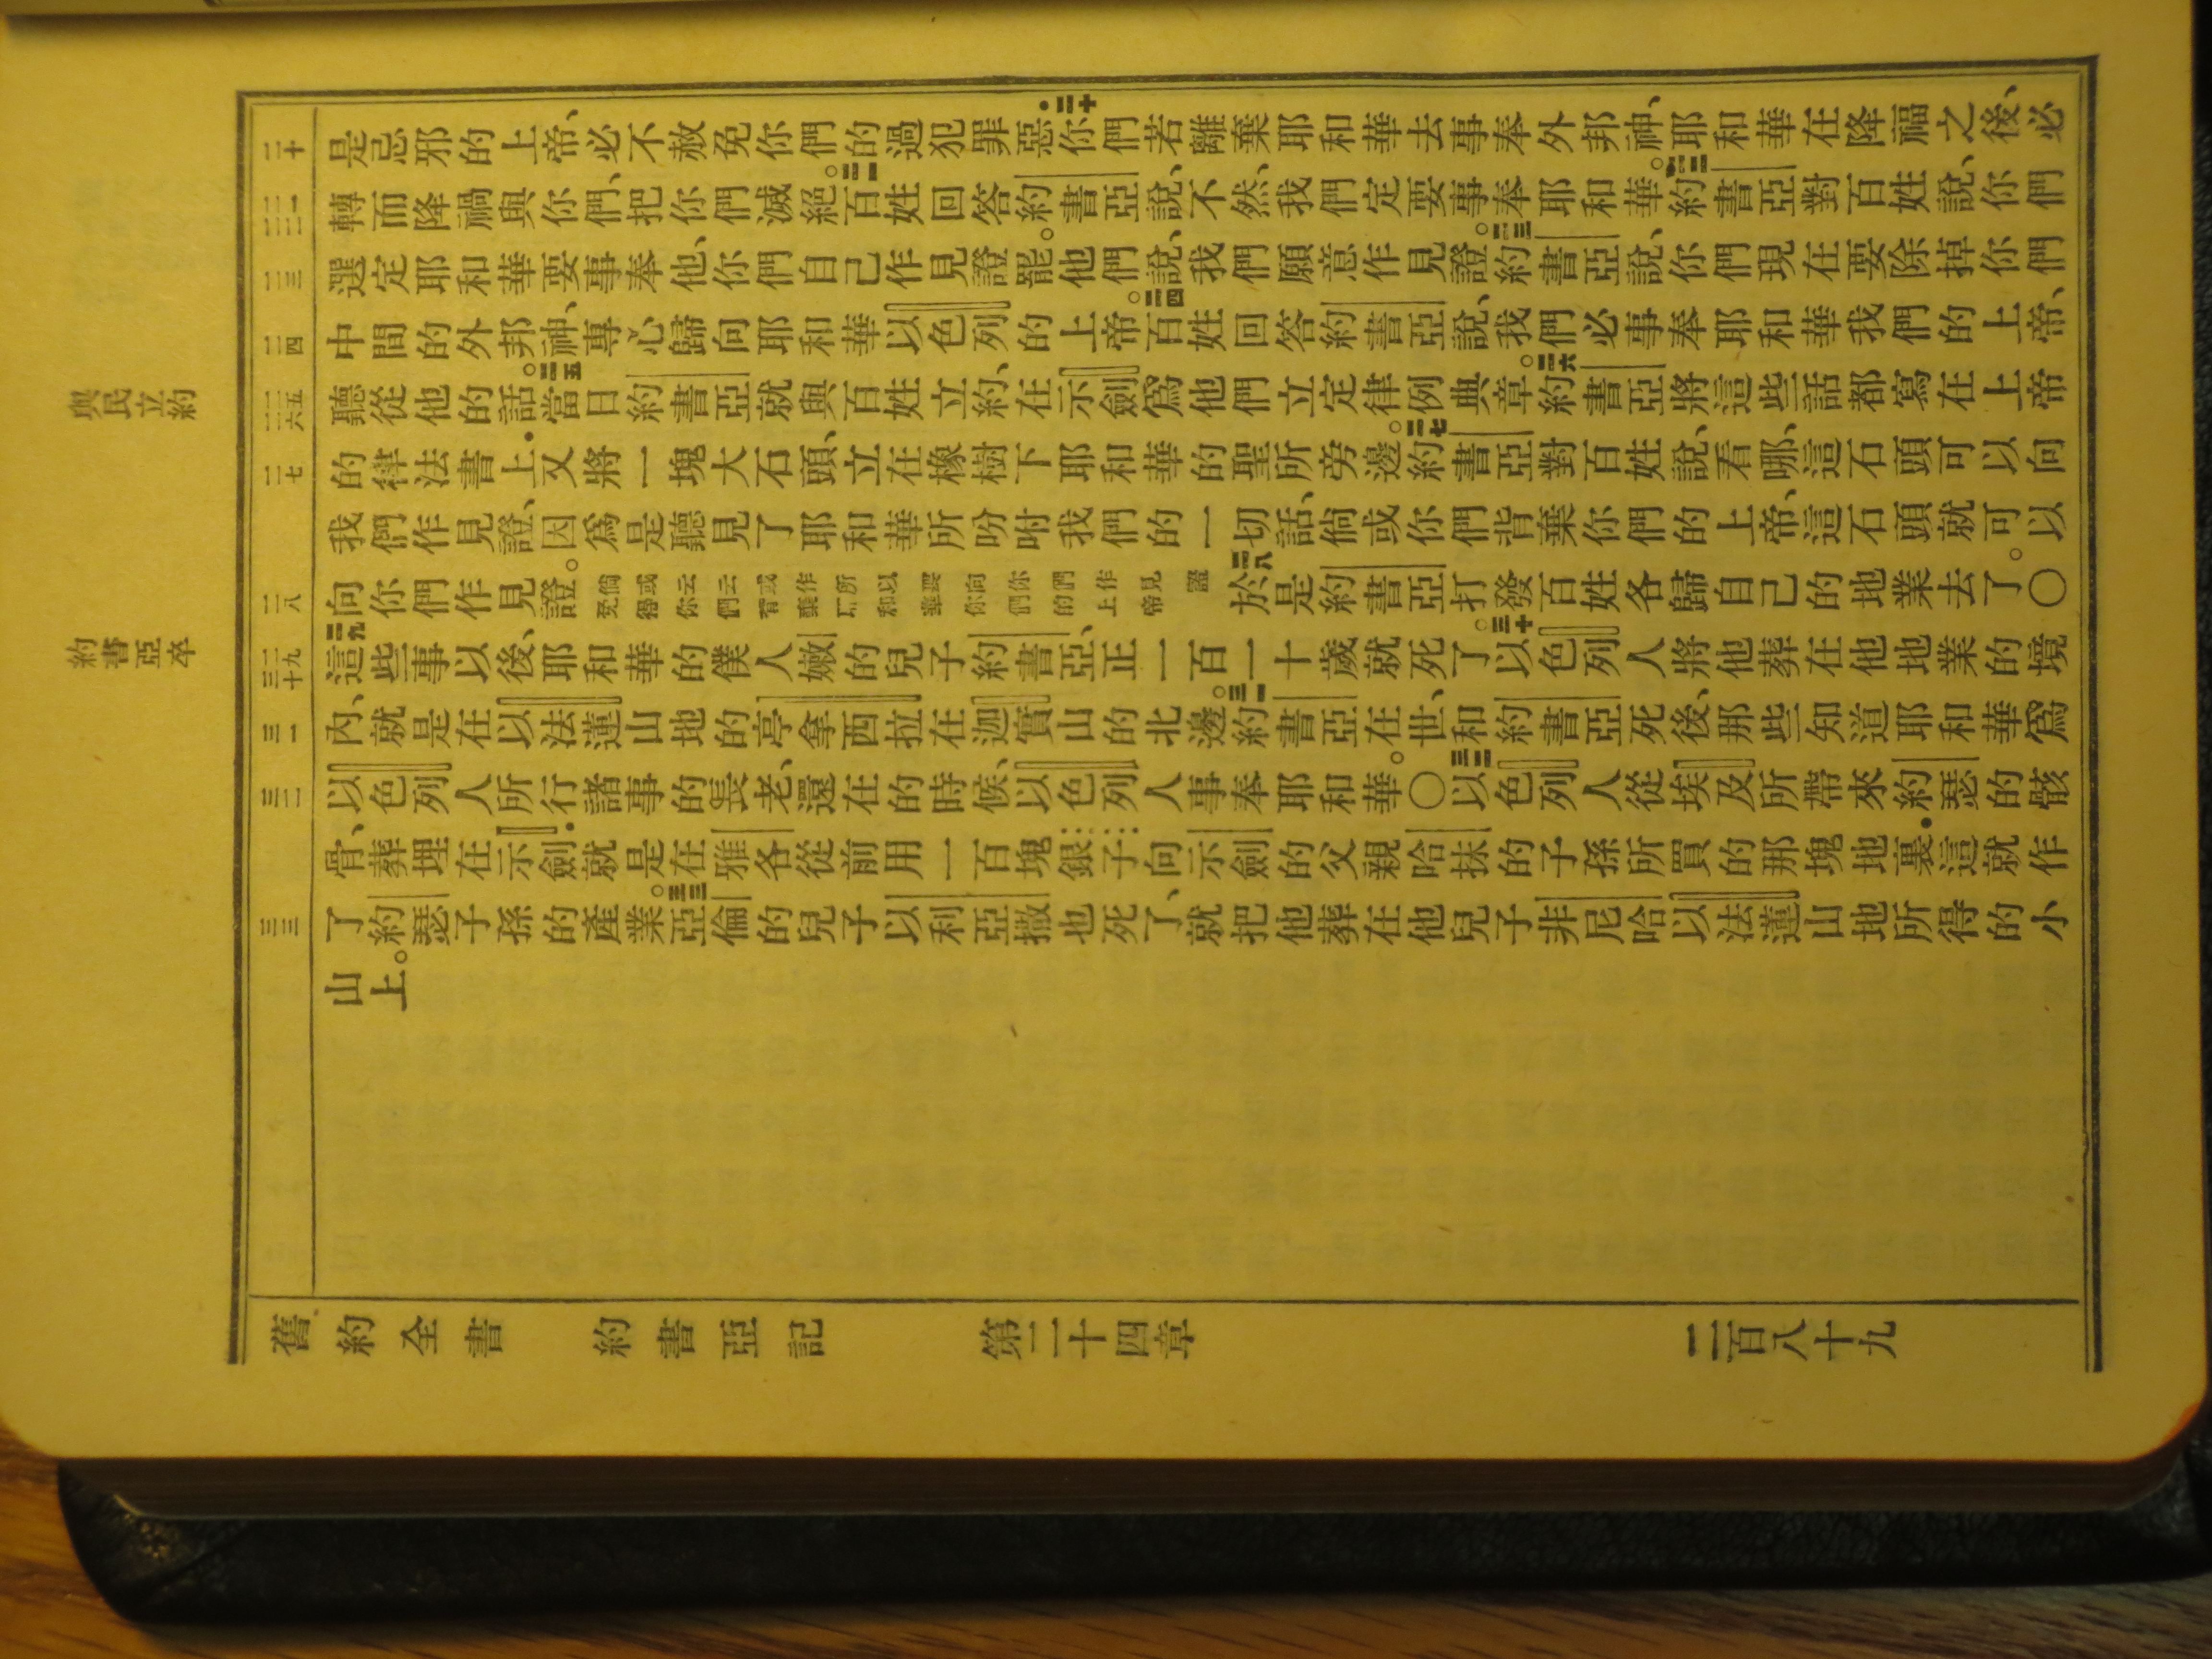 與民立約
約書亞卒
二十
二一
二二
二三
二四
二五
二六
二七
二八
二九
三十
三一
三二
三三
是忌邪的上帝、必不赦免你們的過犯罪惡.二十你們若離棄耶和華去事奉外邦神、耶和華在降福之後、必
轉而降禍與你們、把你們滅絕。二一百姓回答約書亞說、不然、我們定要事奉耶和華。二二約書亞對百姓說、你們
選定耶和華要事奉他、你們自己作見證罷。他們說、我們願意作見證。二三約書亞說、你們現在要除掉你們
中間的外邦神、專心歸向耶和華以色列的上帝。二四百姓回答約書亞說、我們必事奉耶和華我們的上帝、
聽從他的話。二五當日約書亞就與百姓立約、在示劍爲他們立定律例典章。二六約書亞將這些話都寫在上帝
的律法書上.又將一塊大石頭、立在橡樹下耶和華的聖所旁邊。二七約書亞對百姓說、看哪、這石頭可以向
我們作見證、因爲是聽見了耶和華所吩咐我們的一切話、倘或你們背棄你們的上帝、這石頭就可以
向你們作見證。倘或云云或作所以要向你們作見證免得你們背棄耶和華你們的上帝二八於是約書亞打發百姓各歸自己的地業去了。〇
二九這些事以後、耶和華的僕人嫩的兒子約書亞、正一百一十歲就死了。三十以色列人將他葬在他地業的境
內、就是在以法蓮山地的亭拿西拉在迦實山的北邊。三一約書亞在世、和約書亞死後、那些知道耶和華爲
以色列人所行諸事的長老、還在的時候、以色列人事奉耶和華。〇三二以色列人從埃及所帶來約瑟的骸
骨、葬埋在示劍.就是在雅各從前用一百塊銀子向示劍的父親哈抹的子孫所買的那塊地裏.這就作
了約瑟子孫的產業。三三亞倫的兒子以利亞撒也死了、就把他葬在他兒子非尼哈以法蓮山地所得的小
山上。
舊約全書 約書亞記 第二十四章 二百八十九